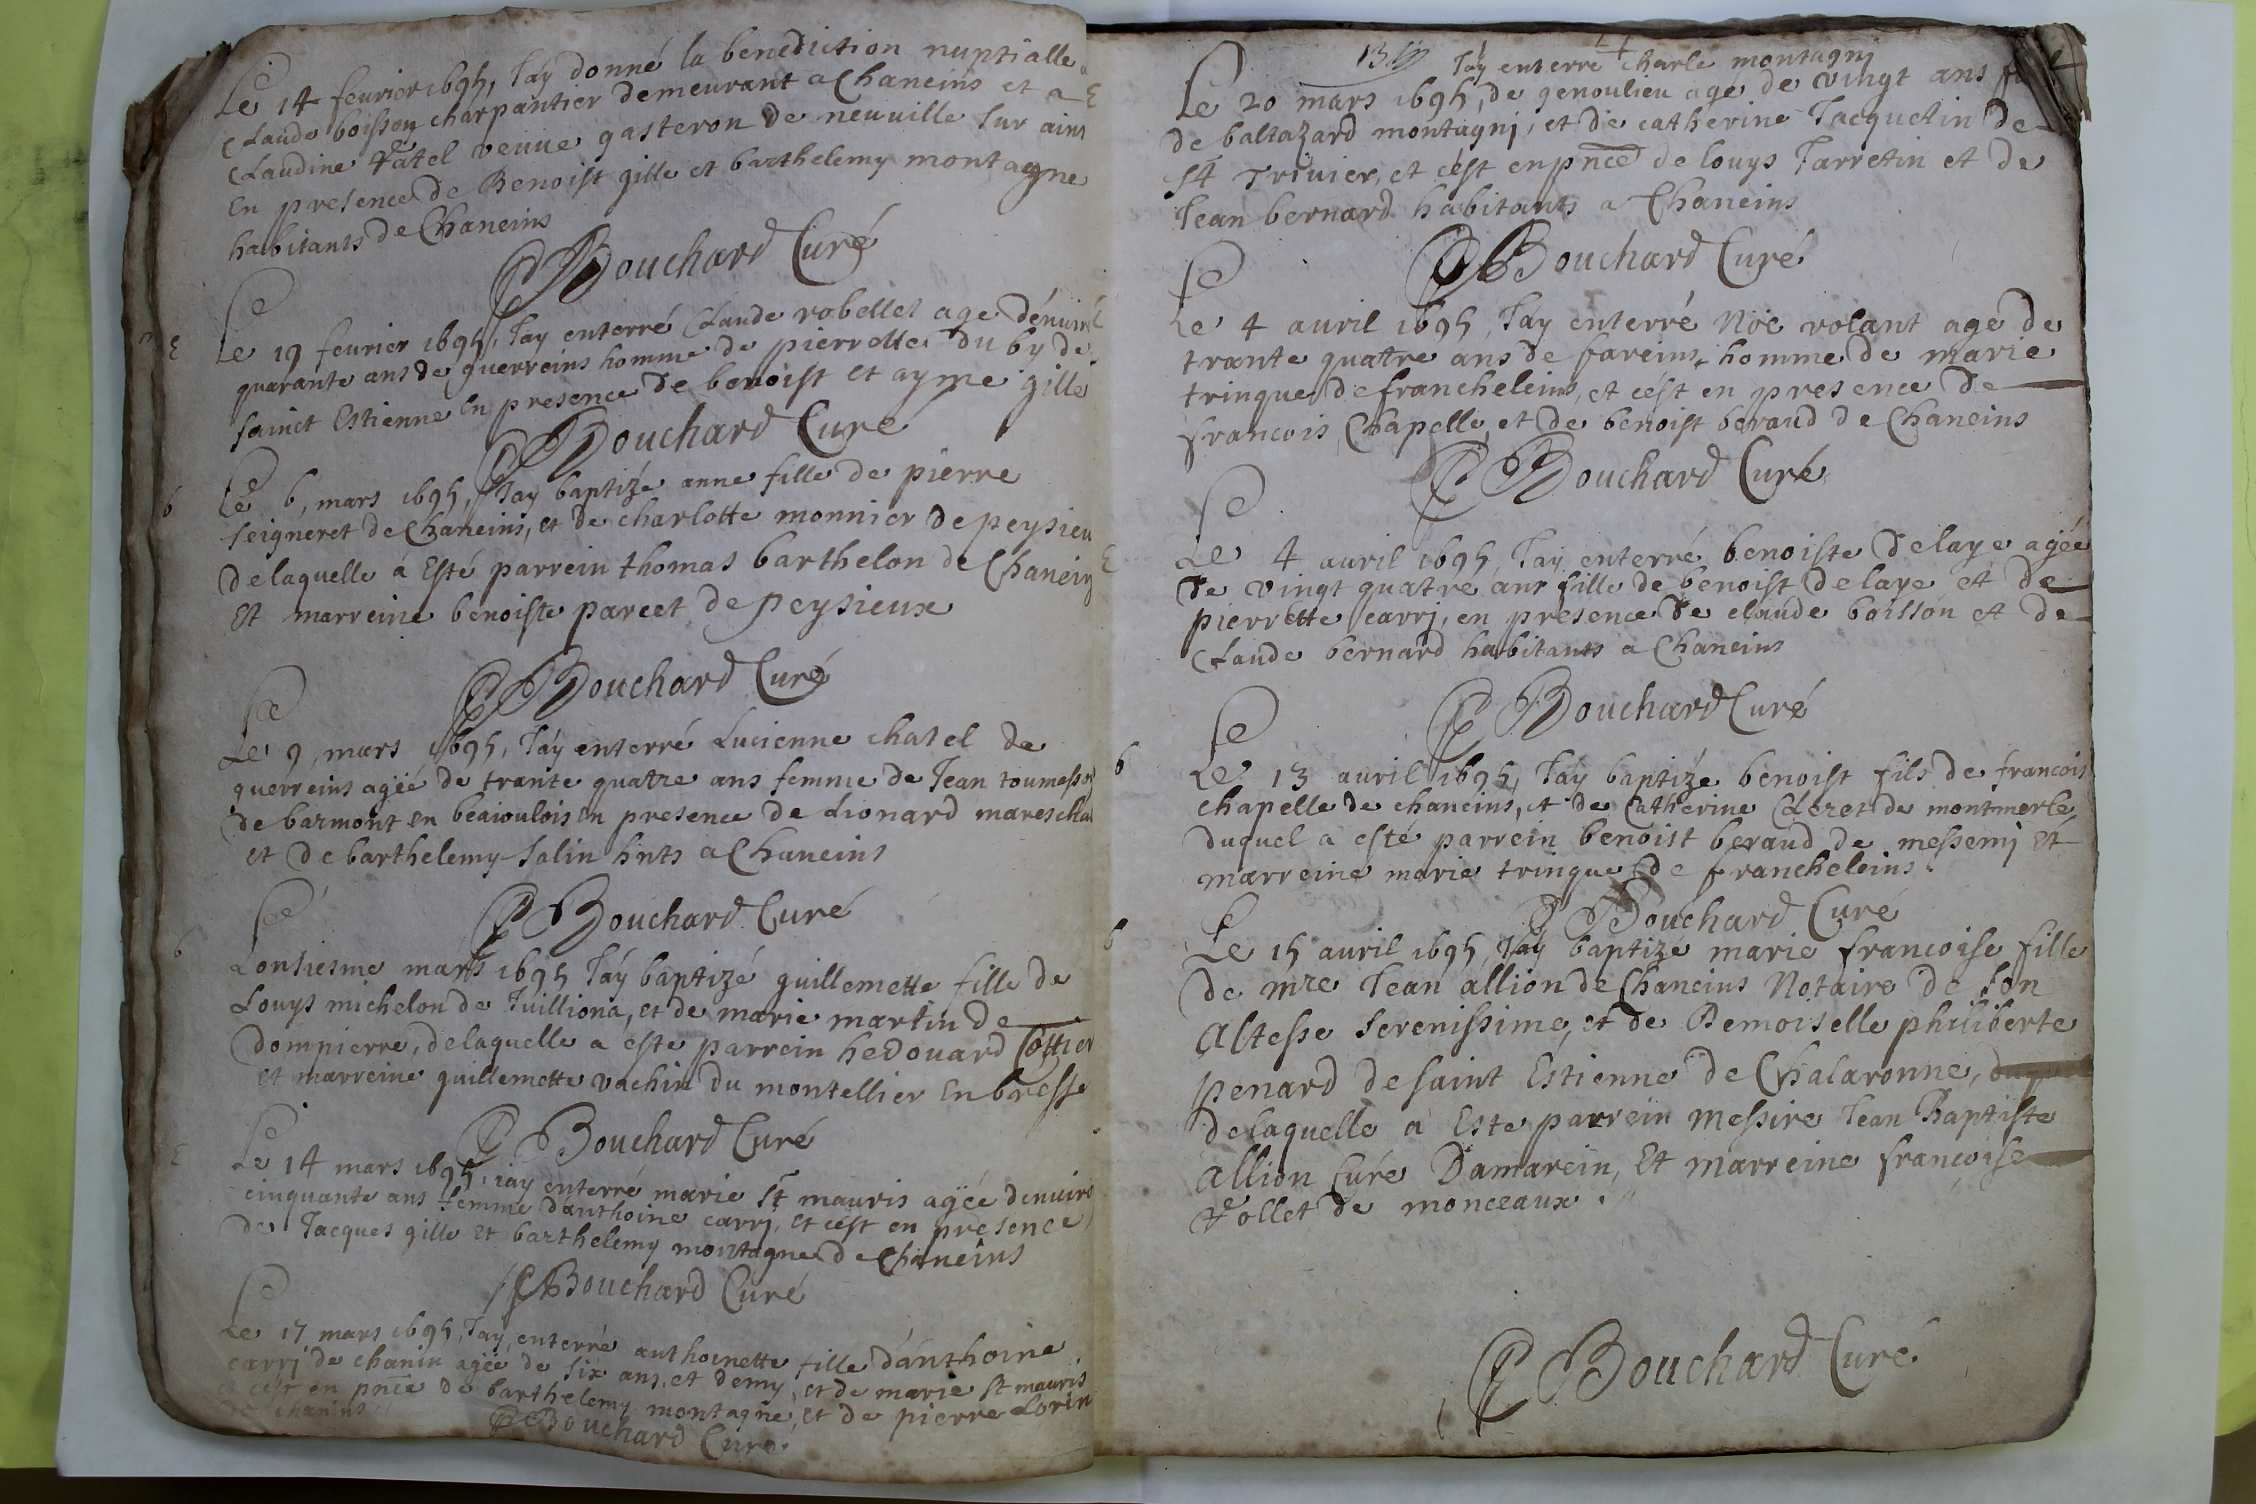 Le 14 feurier 1695, Jay donné la benediction nuptialle a
Claude boisson charpantier demeurant a Chaneins et a
Claudine vatel veuve gasteron de neuuille sur ains
En presence de Benoist gille et barthelemy montagne
habitants de Chaneins
Bouchard Curé
Le 19 feurier 1695, Jay enterré Claude robellet age dénuiré
quarante ans de guerreins homme de pierrette duby de
sainct Estienne En presence de benoist et ayme gille
Bouchard Curé
b
Le 6, mars 1695, Jay baptizé anne fille de pierre
seigneret de Chaneins, et de charlotte monnier de peysieu
delaquelle à Esté parrein thomas barthelon de Chanein
Et marreine benoiste parcet de peysieux
Bouchard Curé
Le 9, mars 1695, Jay enterré Lucienne chatel de
guerreins agéé de trante quatre ans femme de Jean
de barmont en beaioulois En presence de Lionard mareschal
et de barthelemy salin hnts a Chaneins
Bouchard Curé
b
Lonsiesme mars 1695 Jay baptizé guillemette fille de
Louys michelon de Juilliona, et de marie martin de
dompierre, delaquelle a este parrein hedouard Cottier
et marreine guillemette vachin du montellier En bresse
Bouchard Curé
Le 14 mars 1695, iay enterré marie st mauris agéé denuiro
cinquante ans femme danthoine carrj, et cést en presence
de Jacques gille et barthelemy montagne de Chaneins
Bouchard Curé
Le 17 mars 1695, Jay enterré anthoinette fille dánthoine
carrj de chanin agéé de six ans et demy, et de marie st mauris
et cést en pnce de barthelemy montagne, et de pierre Lorin
de chanins
Bouchard Curé
Jay enterré charle montagnj
Le 20 mars 1695, de genoulieu age de vingt ans
de baltazard montagnj, et de catherine Jacquetin de
st Triuier, et cést en pnce de louys Jarretin et de
Jean bernard habitants a Chaneins
Bouchard Curé
Le 4 auril 1695, Jay enterré Noë volant age de
trante quattre ans de fareins, homme de marie
trinque de francheleins, et cést en presence de
francois Chapelle, et de benoist beraud de Chaneins
Bouchard Curé
Le 4 auril 1695, Jay enterré benoiste delaye agéé
de vingt quatre ans fille de benoist delaye et de
pierrette carrj, en presence de claude boisson et de
Claude bernard habitants a Chaneins
Bouchard Curé
b
Le 13 auril 1695, Jay baptizé benoist fils de francois
chapelle de chaneins, et de Catherine Cleret de montmerle,
duquel a esté parrein benoist beraud de messemj Et
marreine marie trinque de francheleins.
Bouchard Curé
b
Le 15 auril 1695, Jay baptizé marie francoise fille
de mre Jean allion de Chaneins Notaire de son
Altesse serenissime, et de Demoiselle philiberte
penard de saint Estienne de Chalaronne,
delaquelle à Este parrein messire Jean Baptiste
Allion Curé Damarein, Et marreine francoise
vollet de monceaux.
Bouchard Curé